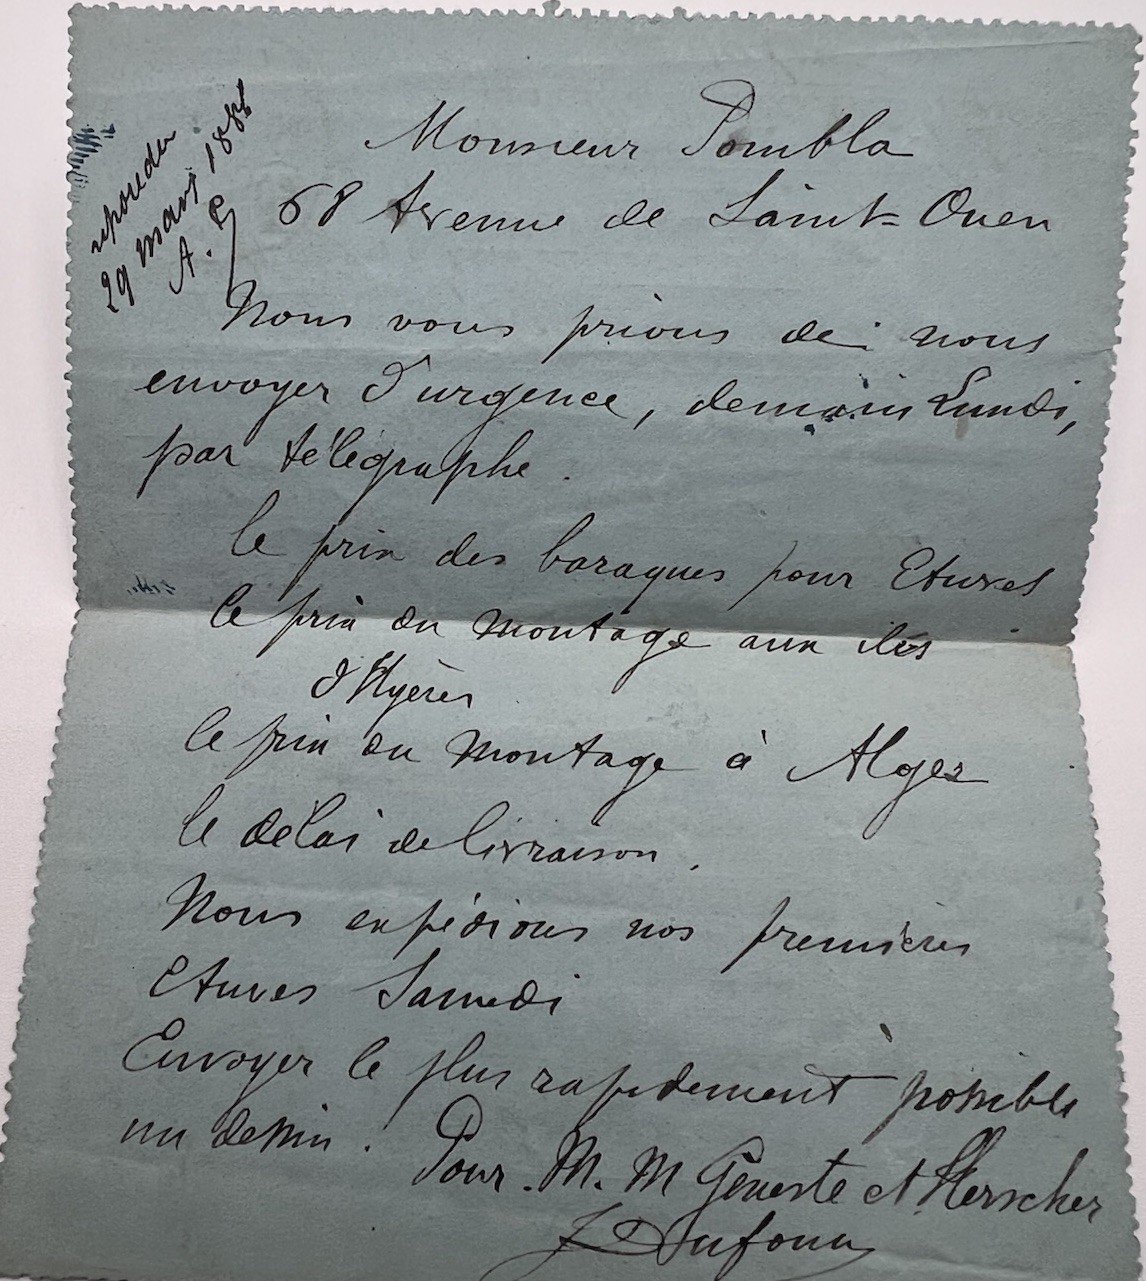 repondu
29 mars 1886
A. P.
Monsieur Pombla
68 Avenue de Saint-Ouen
Nous vous prions de nous
envoyer d'urgence, demain Lundi,
par télégraphe.
le prix des baraques pour Etuves
le prix du montage aux iles
d'Hyères
le prix du montage à Alger
le délai de livraison.
Nous expédions nos premières
Etuves Samedi
Envoyer le plus rapidement possible
un dessin.
Pour M. M Geneste et Herscher
Dufour